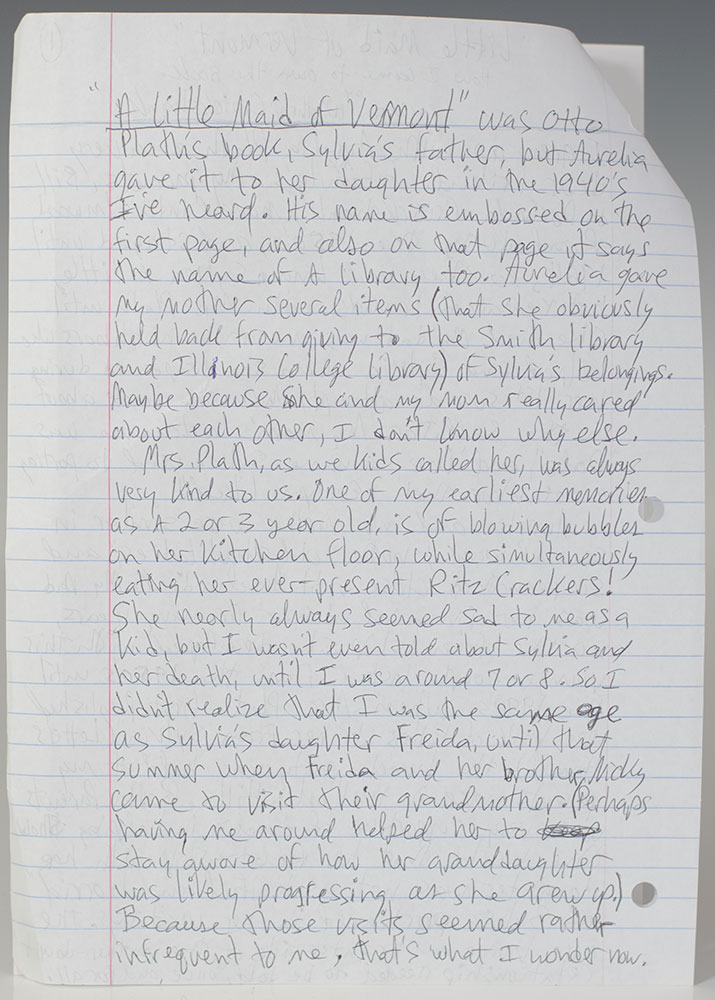 "A Little Maid of Vermont" was Otto
Plath's book, Sylvia's father, but Aurelia
gave it to her daughter in the 1940's
I've heard. His name is embossed on the
first page, and also on that page it says
the name of A library too. Aurelia gave
my mother several items (that she obviously
held back from giving to the Smith library
and Illinois College library) of Sylvia's belongings.
Maybe because she and my mom really cared
about each other, I don't know why else.
Mrs. Plath, as we kids called her, was always
very kind to us. One of my earliest memories
as A 2 or 3 year old, is of blowing bubbles
on her kitchen floor, while simultaneously
eating her ever-present Ritz Crackers!
She nearly always seemed sad to me as a
kid, but I wasn't even told about Sylvia and
her death, until I was around 7 or 8. So I
didn't realize that I was the same age
as Sylvia's daughter Freida, until that
summer when Freida and her brother, Nicky
came to visit their grandmother. (Perhaps
having me around helped her to
stay aware of how her granddaughter
was likely progressing as she grew up.)
Because those visits seemed rather
infrequent to me, that's what I wonder now.